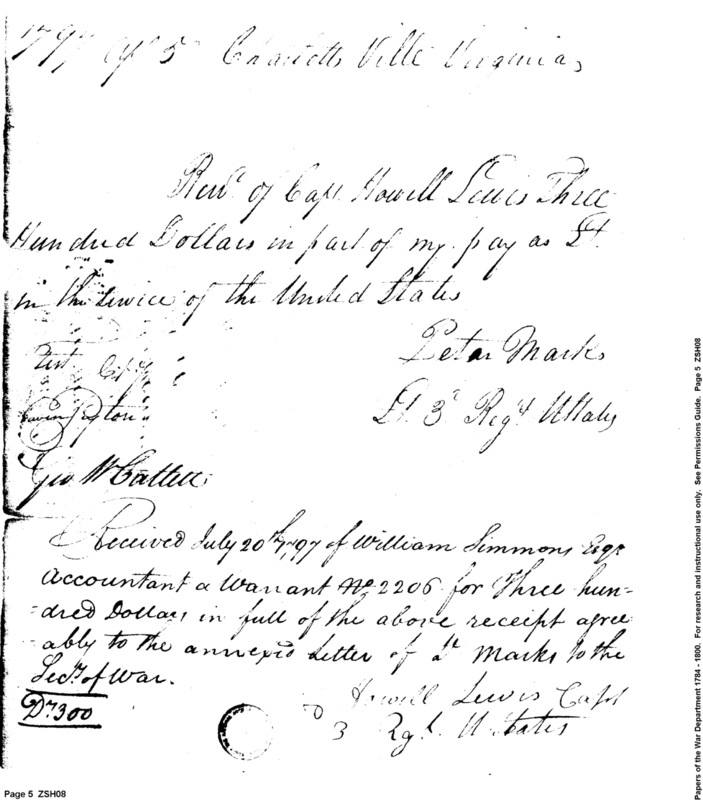 1797 Apl 5 Charlotts Ville Virginia,
Recd of Capt Howell Lewis Three
Hundred Dollars in part of my pay as Lt.
in the Service of the United States
Petar Marks
Lt. 3d Regt UStates
Test
Geo W Catlett
Received July 20th 1797 of William Simmons Esqr
Accountant a Warrant No 2206 for Three hun=
=dred Dollars in full of the above receipt agree
=ably to the annexed Letter of Lt Marks to the
Secy of War.
Howell Lewis Capt
Drs 300
3 Regt. U States
Page 5 ZSH08
Papers of the War Department 1784 - 1800. For research and instructional use only. See Permissions Guide. Page 5 ZSH08